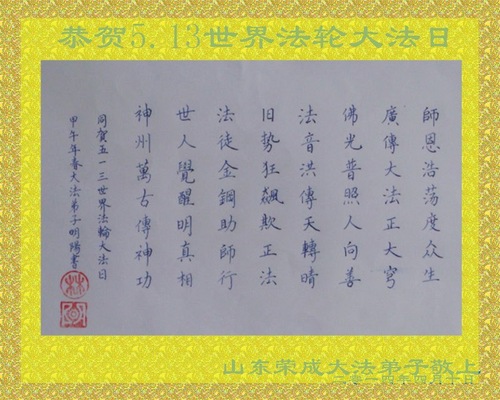 恭贺5.13世界法轮大法日
師恩浩荡度众生
廣傳大法正大穹
佛光普照人向善
法音洪傳天轉晴
旧势狂飙欺正法
法徒金鋼助師行
世人覺醒明真相
神州萬古傳神功
同賀五一三世界法輪大法日
甲午年春大法弟子明陽書
山东荣成大法弟子敬上
二零一四年四月十日